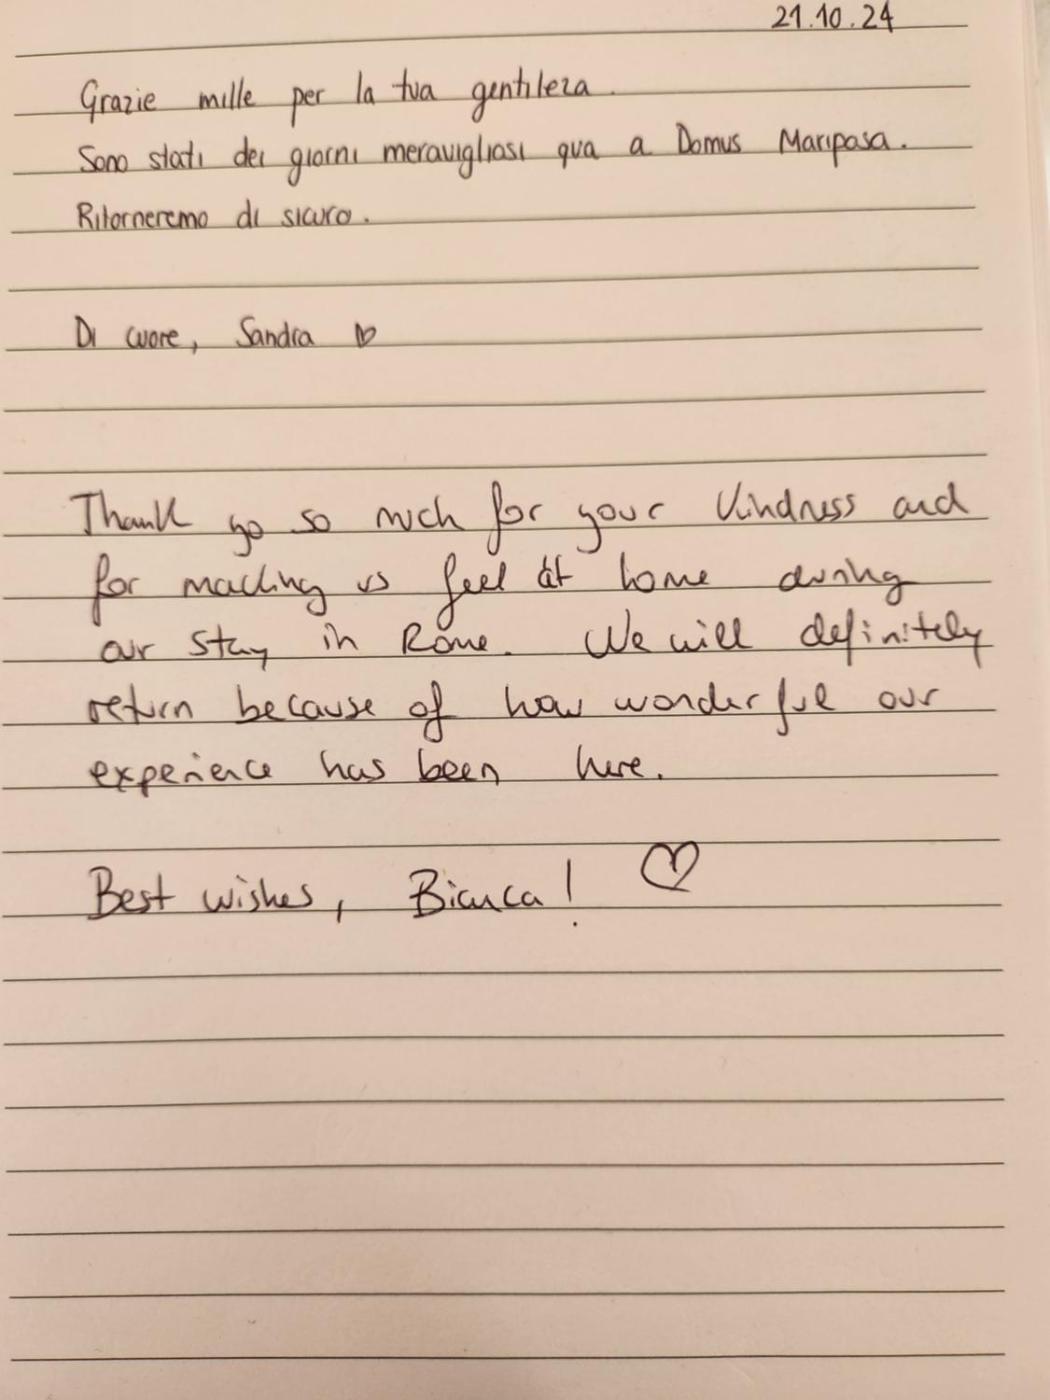 21.10.24
Grazie mille per la tua gentileza.
Sono stati dei giorni meravigliosi qua a Domus Mariposa.
Ritorneremo di sicuro.
Di cuore, Sandra ♡
Thank yo so much for your kindness and
for macking us feel at home during
our stay in Rome. We will definitely
return because of how wonderful our
experience has been here.
Best wishes, Bianca! ♡